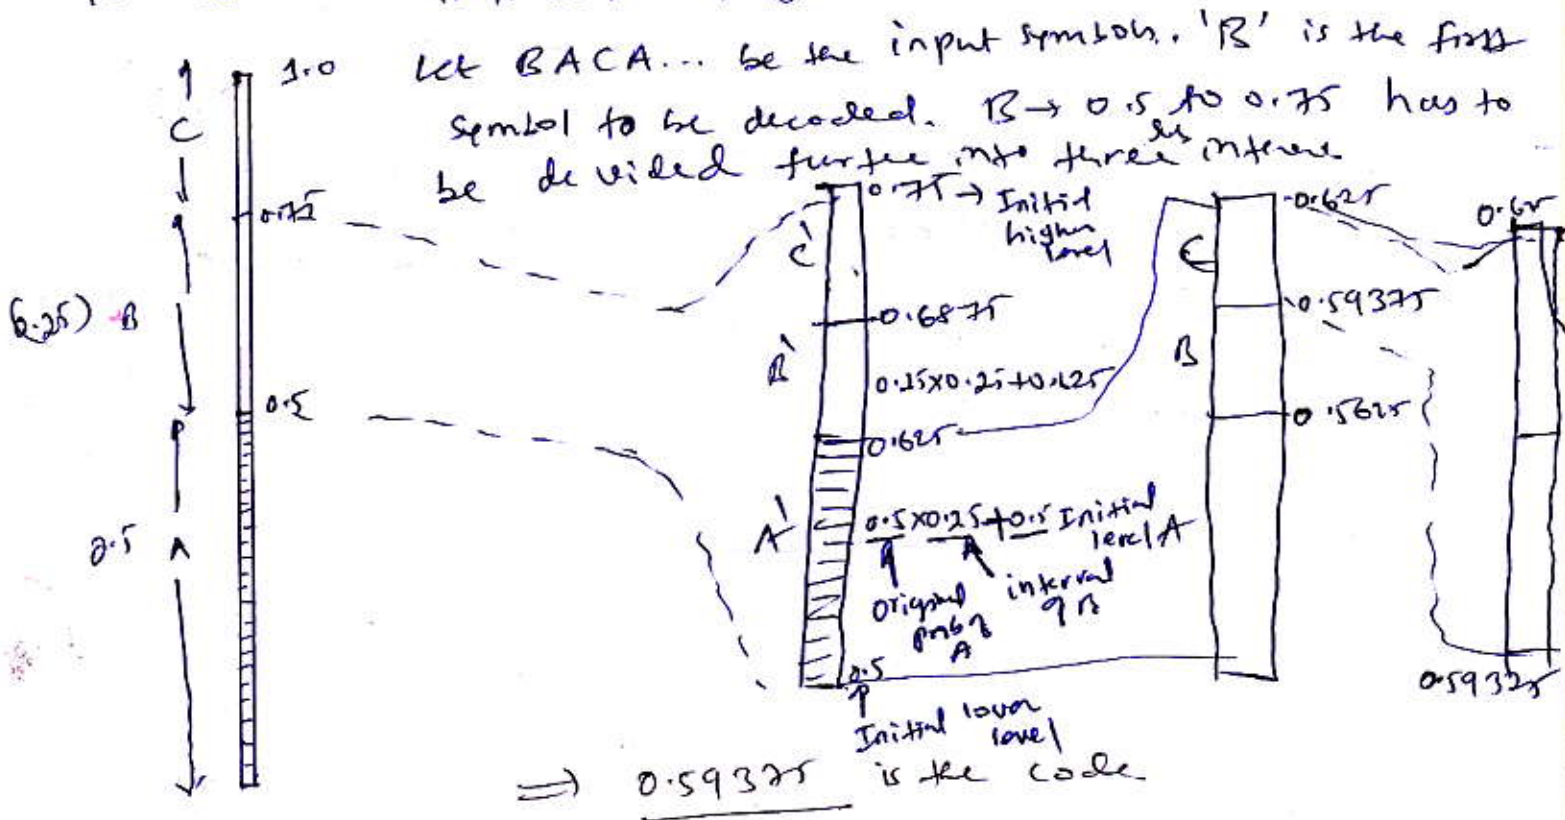 1.0 Let BACA... be the input symbols. 'B' is the first
symbol to be decoded. B → 0.5 to 0.75 has to
be devided further into three intervals
C
0.75
(0.25) B
0.5
0.5 A
0.75 → Initial
higher
level
C'
0.6875
B'
0.25x0.25+0.625
0.625
A'
0.5x0.25+0.5 Initial
level A
original
prob of
A
interval
of B
0.5
Initial lower
level
0.625
C
0.59375
B
0.5625
0.625
0.59375
⇒ 0.59375 is the code